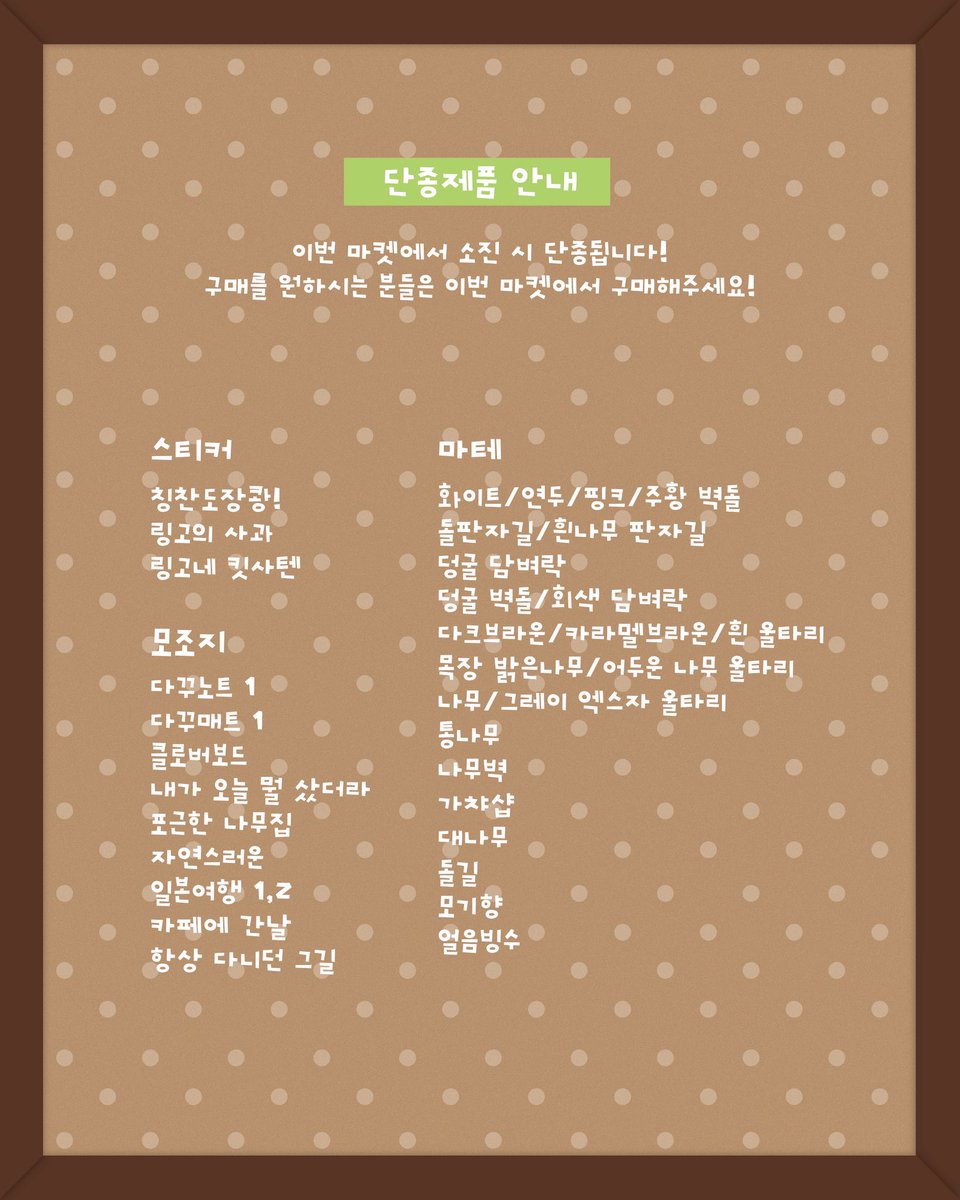 단종제품 안내
이번 마켓에서 소진 시 단종됩니다!
구매를 원하시는 분들은 이번 마켓에서 구매해주세요!
스티커
칭찬도장쾅!
링고의 사과
링고네 킷사텐
모조지
다꾸노트 1
다꾸매트 1
클로버보드
내가 오늘 뭘 샀더라
포근한 나무집
자연스러운
일본여행 1,2
카페에 간날
항상 다니던 그길
마테
화이트/연두/핑크/주황 벽돌
돌판자길/흰나무 판자길
덩굴 담벼락
덩굴 벽돌/회색 담벼락
다크브라운/카라멜브라운/흰 울타리
목장 밝은나무/어두운 나무 울타리
나무/그레이 엑스자 울타리
통나무
나무벽
가챠샵
대나무
돌길
모기향
얼음빙수